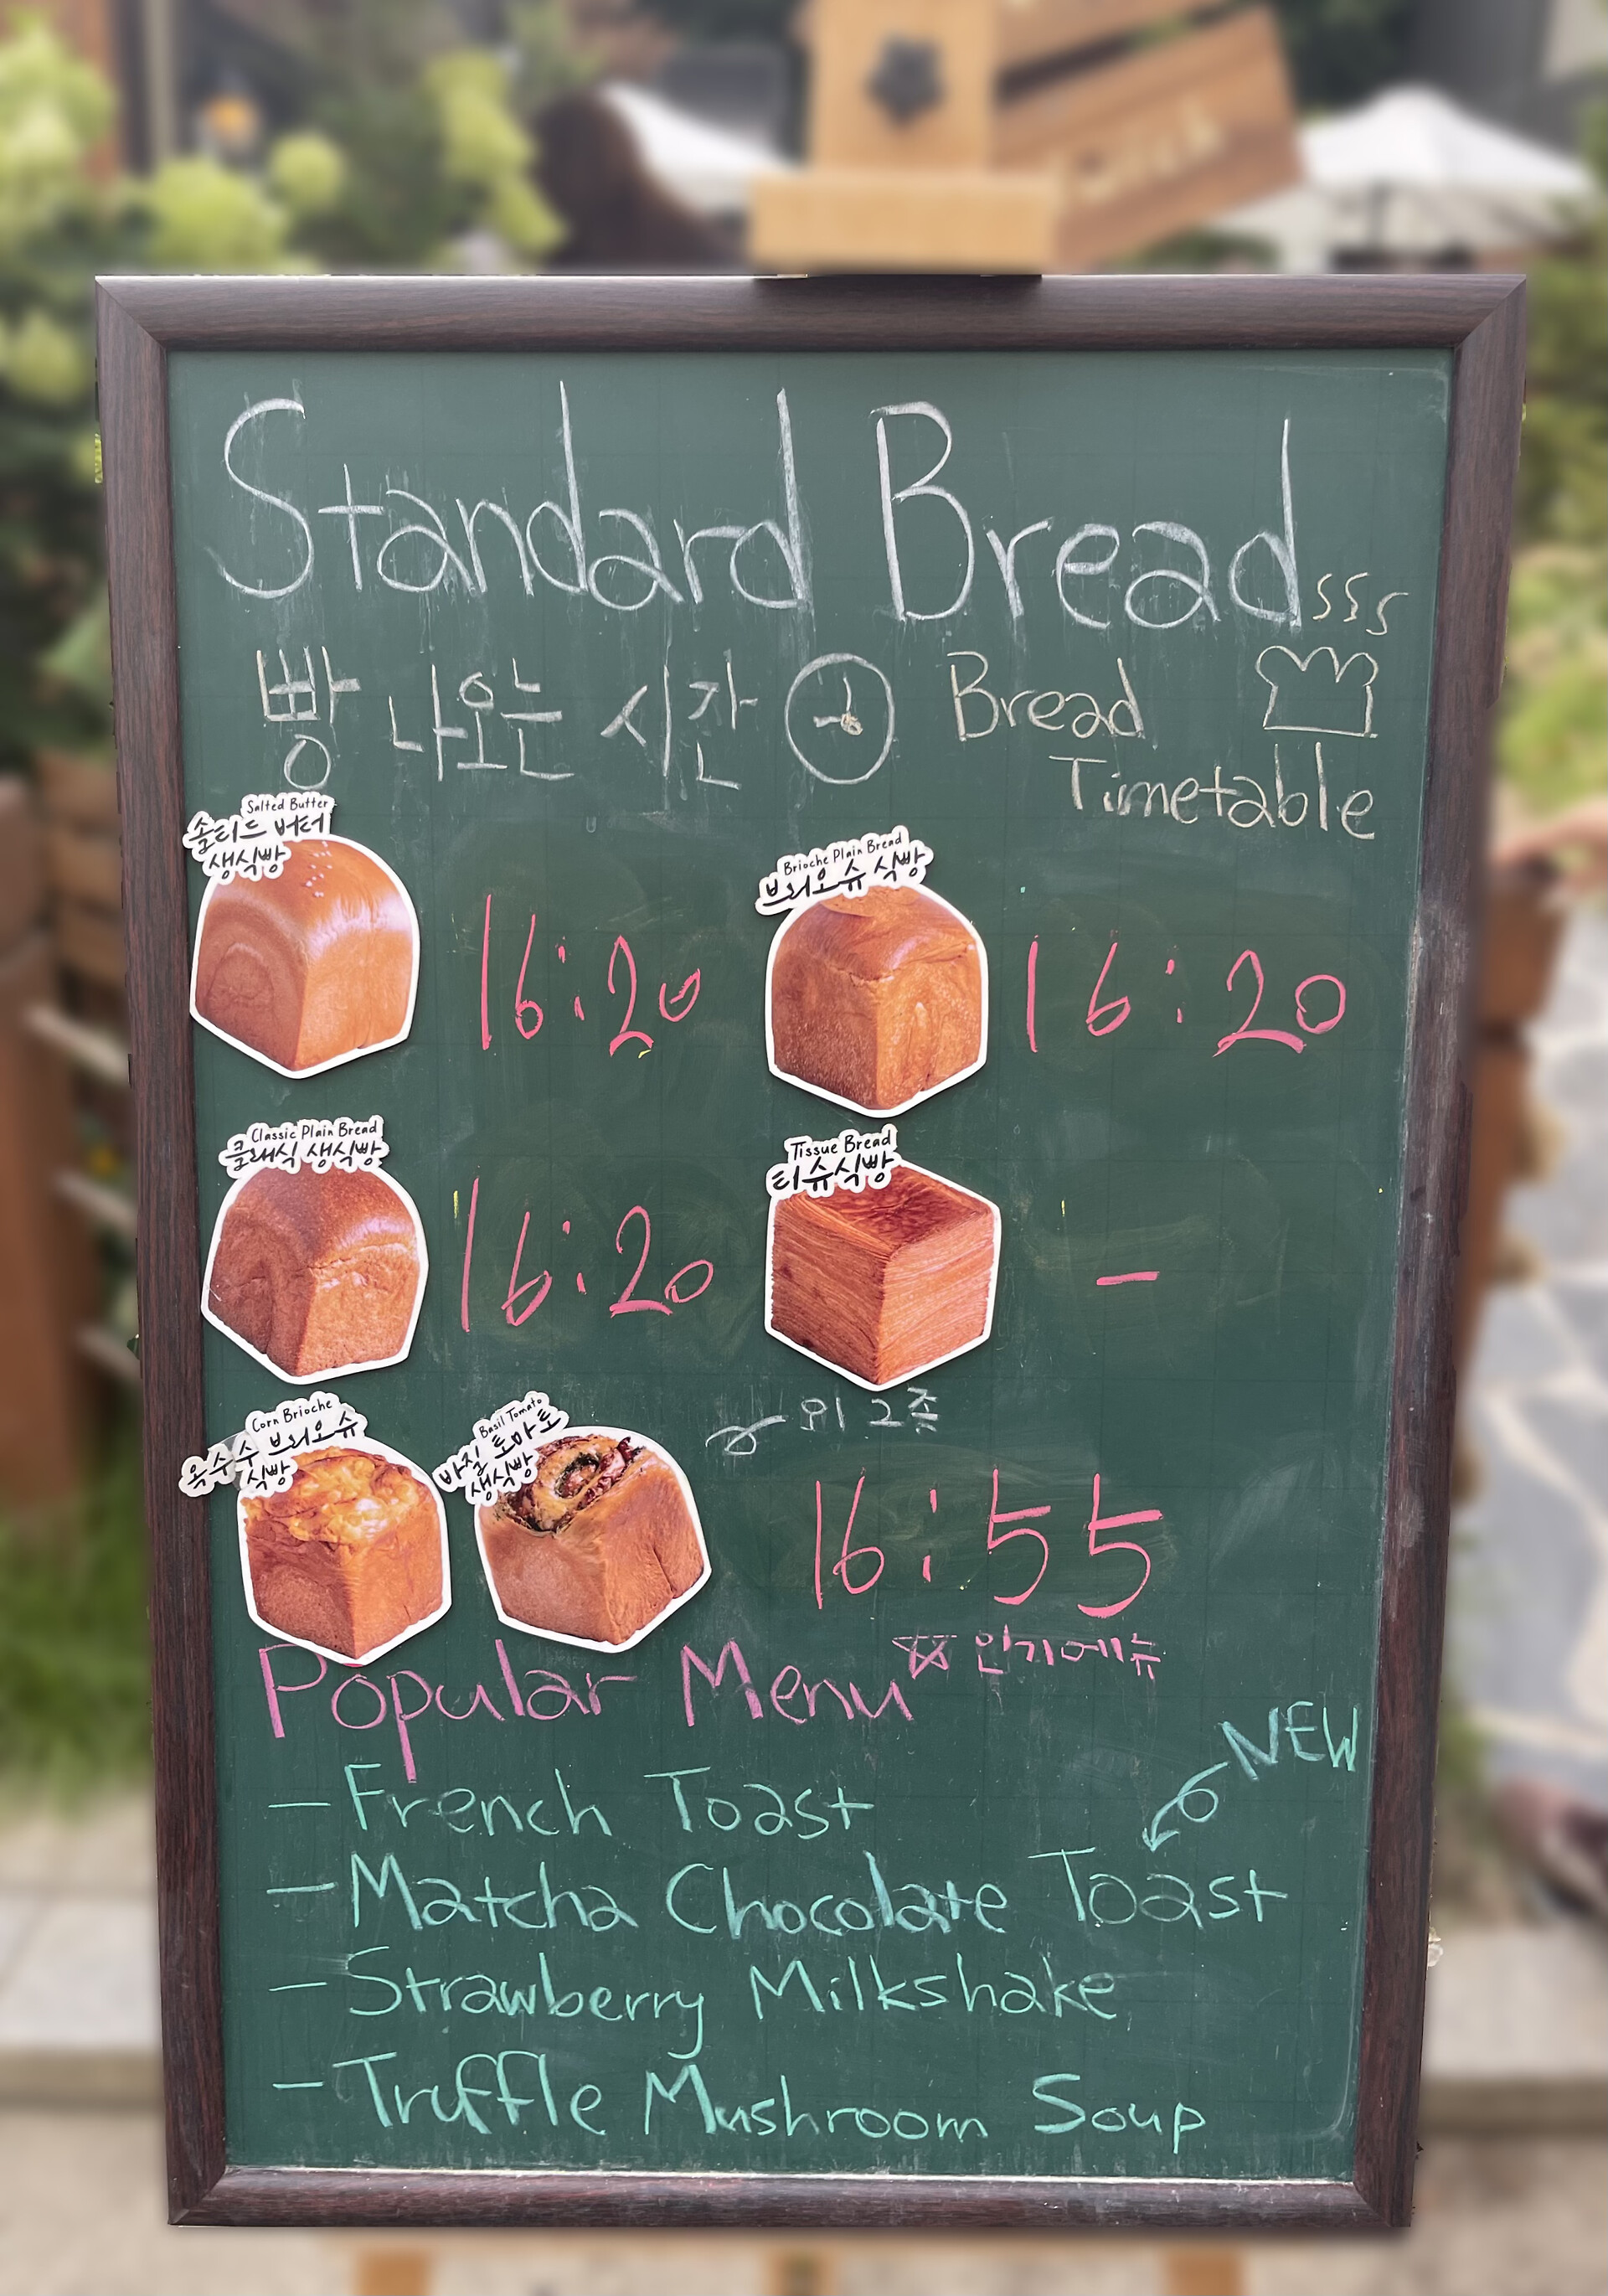 Standard Bread
빵 나오는 시간 Bread
Timetable
Salted Butter
솔티드 버터
생식빵
16:20
Brioche Plain Bread
브리오슈 식빵
16:20
Classic Plain Bread
클래식 생식빵
16:20
Tissue Bread
티슈식빵
-
Corn Brioche
옥수수 브리오슈
식빵
Basil Tomato
바질 토마토
생식빵
외 2종
16:55
Popular Menu 인기메뉴
NEW
- French Toast
- Matcha Chocolate Toast
- Strawberry Milkshake
- Truffle Mushroom Soup